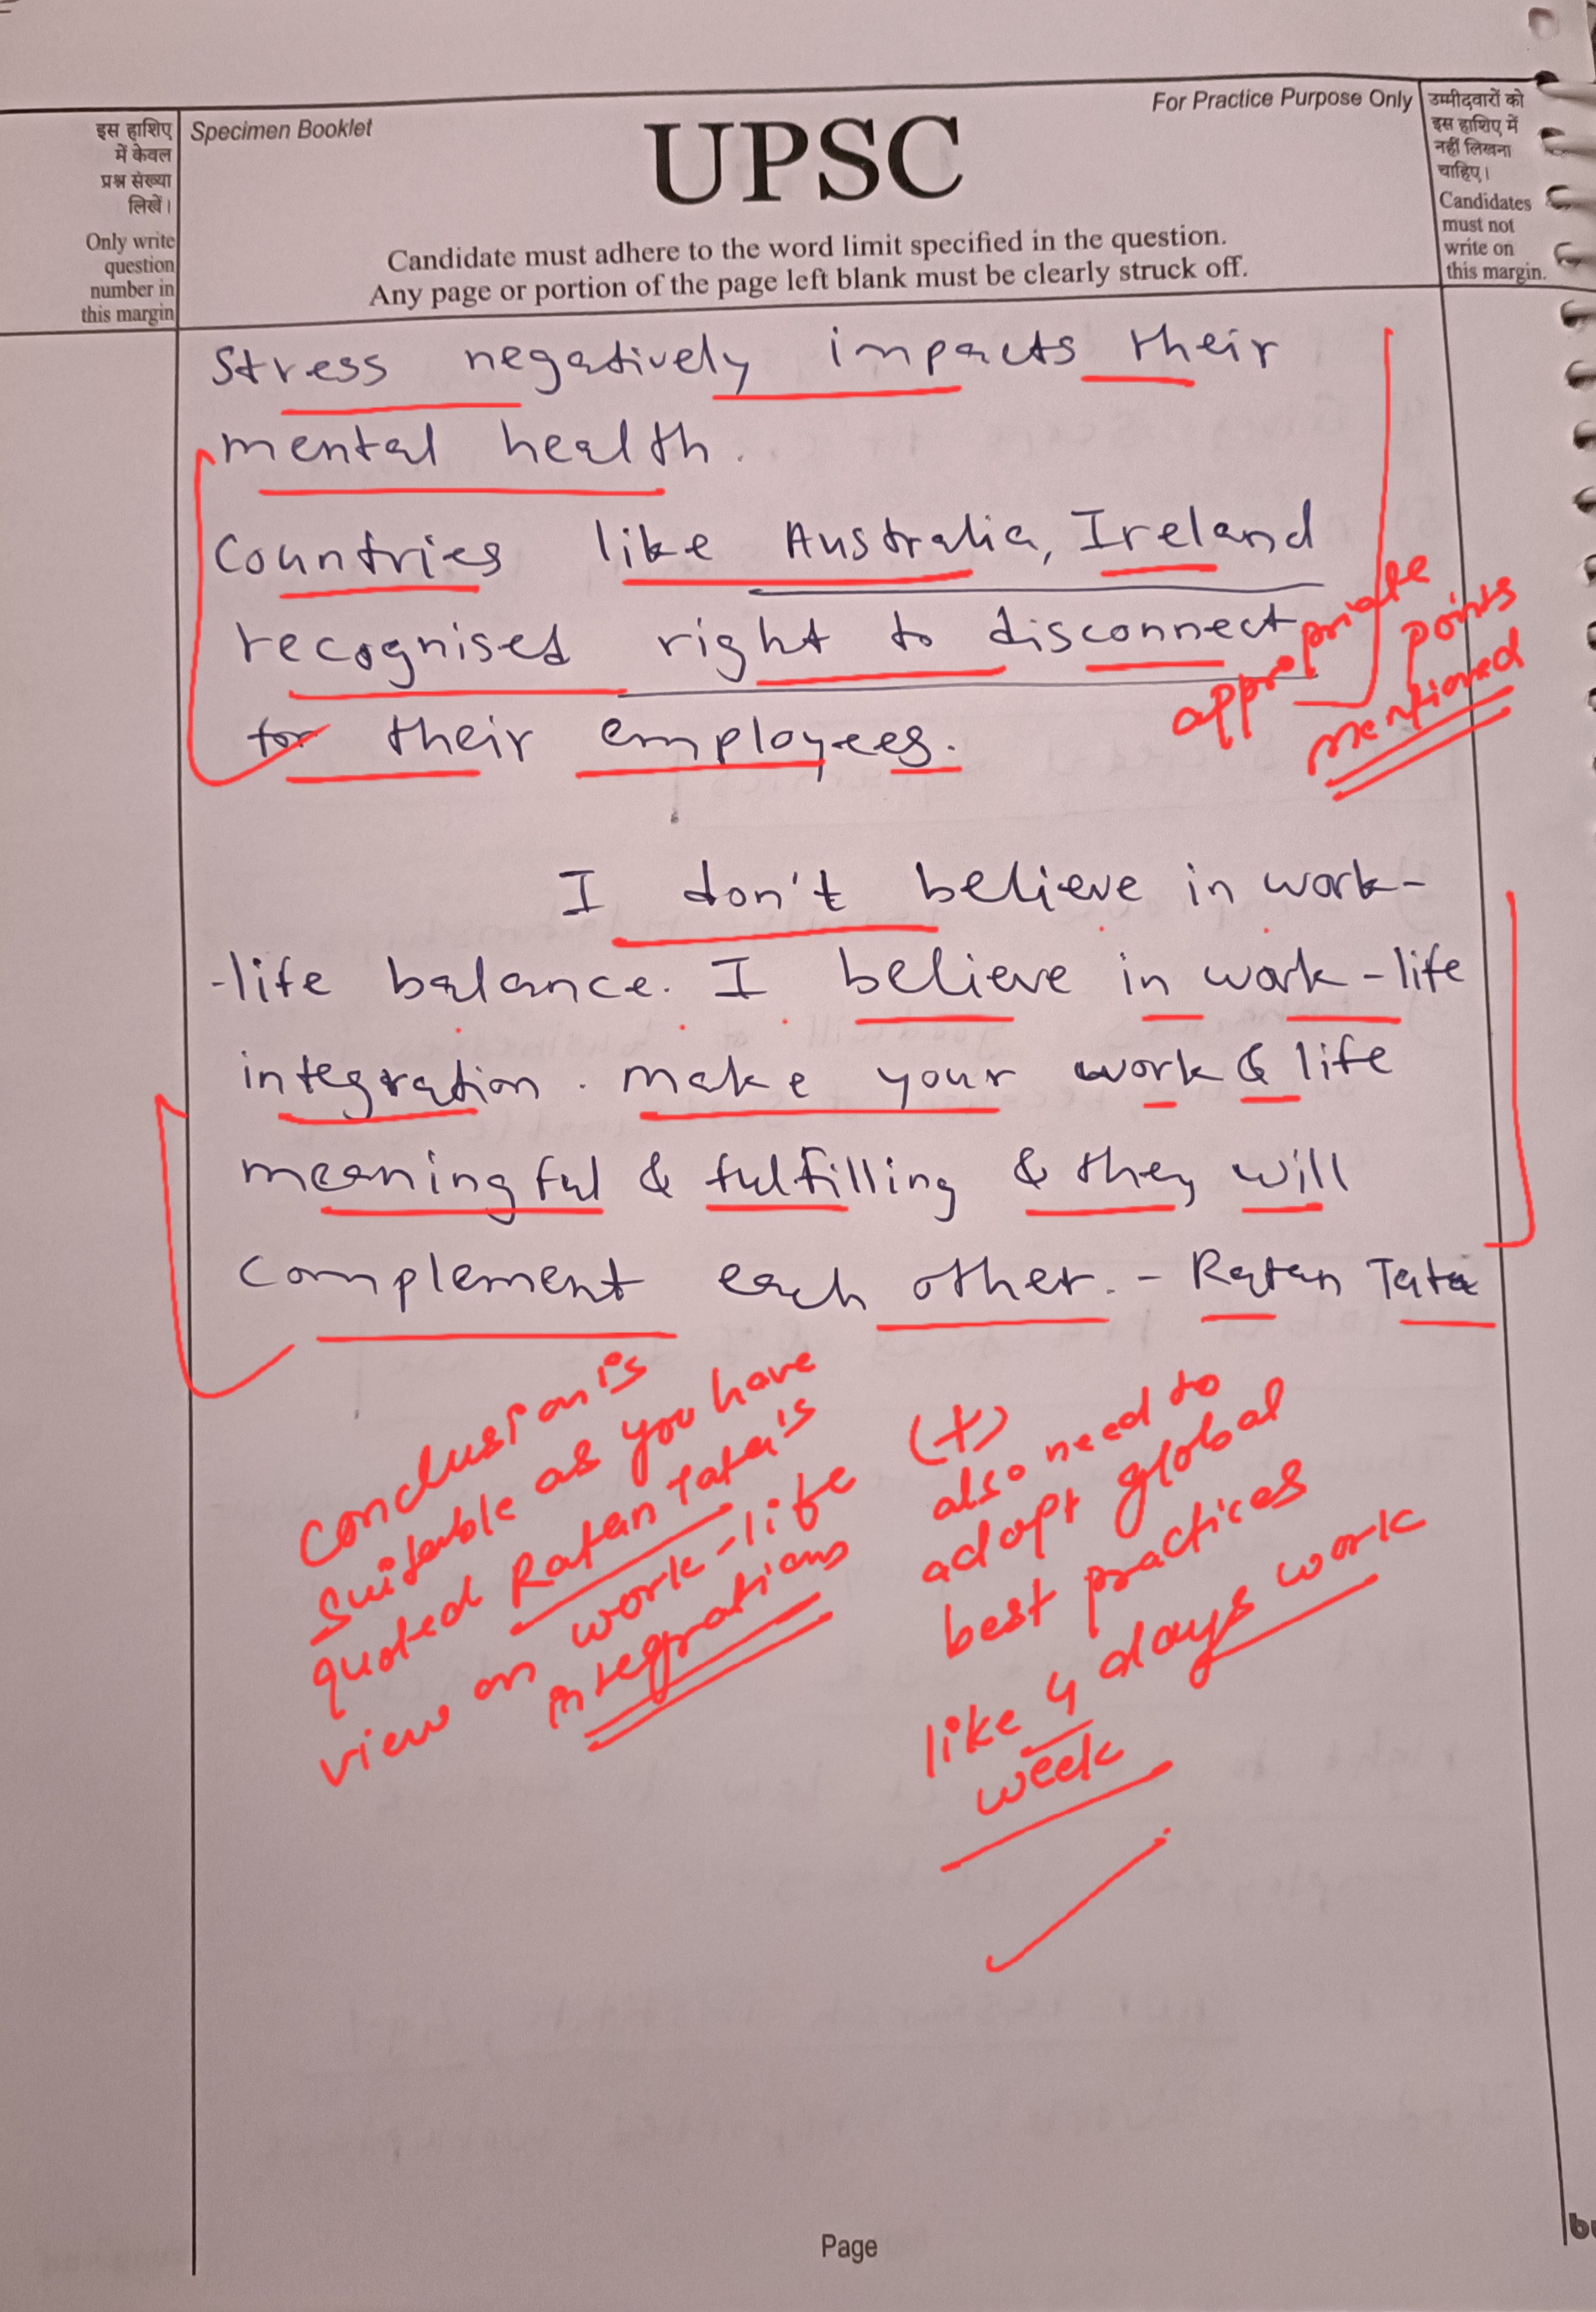 इस हाशिए
में केवल
प्रश्न संख्या
लिखें।
Only write
question
number in
this margin
Specimen Booklet
UPSC
For Practice Purpose Only
Candidate must adhere to the word limit specified in the question.
Any page or portion of the page left blank must be clearly struck off.
उम्मीदवारों को
इस हाशिए में
नहीं लिखना
चाहिए।
Candidates
must not
write on
this margin.
Stress negatively impacts their
mental health.
Countries like Australia, Ireland
recognised right to disconnect
for their employees.
appropriate
points
mentioned
I don't believe in work-
-life balance. I believe in work-life
integration. Make your work & life
meaningful & fulfilling & they will
complement each other. - Ratan Tata
Conclusion is
suitable as you have
quoted Ratan Tata's
view on work-life
integrations
(+)
also need to
adopt global
best practices
like 4 days work
week
Page